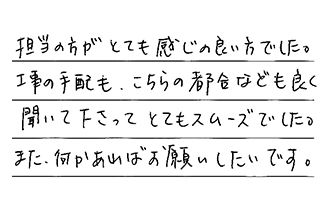 担当の方がとても感じの良い方でした。
工事の手配も、こちらの都合なども良く
聞いて下さってとてもスムーズでした。
また、何かあればお願いしたいです。